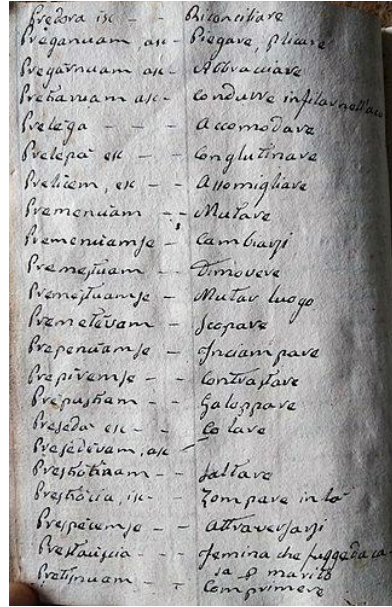 Predora isc - - Riconciliare
Preganuam asc - Piegare, plicare
Pregarnuam asc - Abbraciare
Prekaruam asc - Condurre in filar nell'aco
Prelega - - - Accomodare
Prelepa esc - - Conglutinare
Prelicem, esc - - Assomigliare
Premenuam - - Mutare
Premenuamse - Cambiarsi
Premestuam - - Dimovere
Premestuamse - Mutar luogo
Premetevam - - Scopare
Prepenuamse - Inciampare
Prepiremse - - Contrastare
Prepuskam - - Galoppare
Preseda esc - - Colare
Presedevam, asc -
Preskokuam - - Saltare
Preskocia, isc - - Zompare in la
Prespecemse - - Attraversarsi
Prestauscia - - - Femina che fugge da ca-
sa p marito
Pretisnuam - - Comprimere